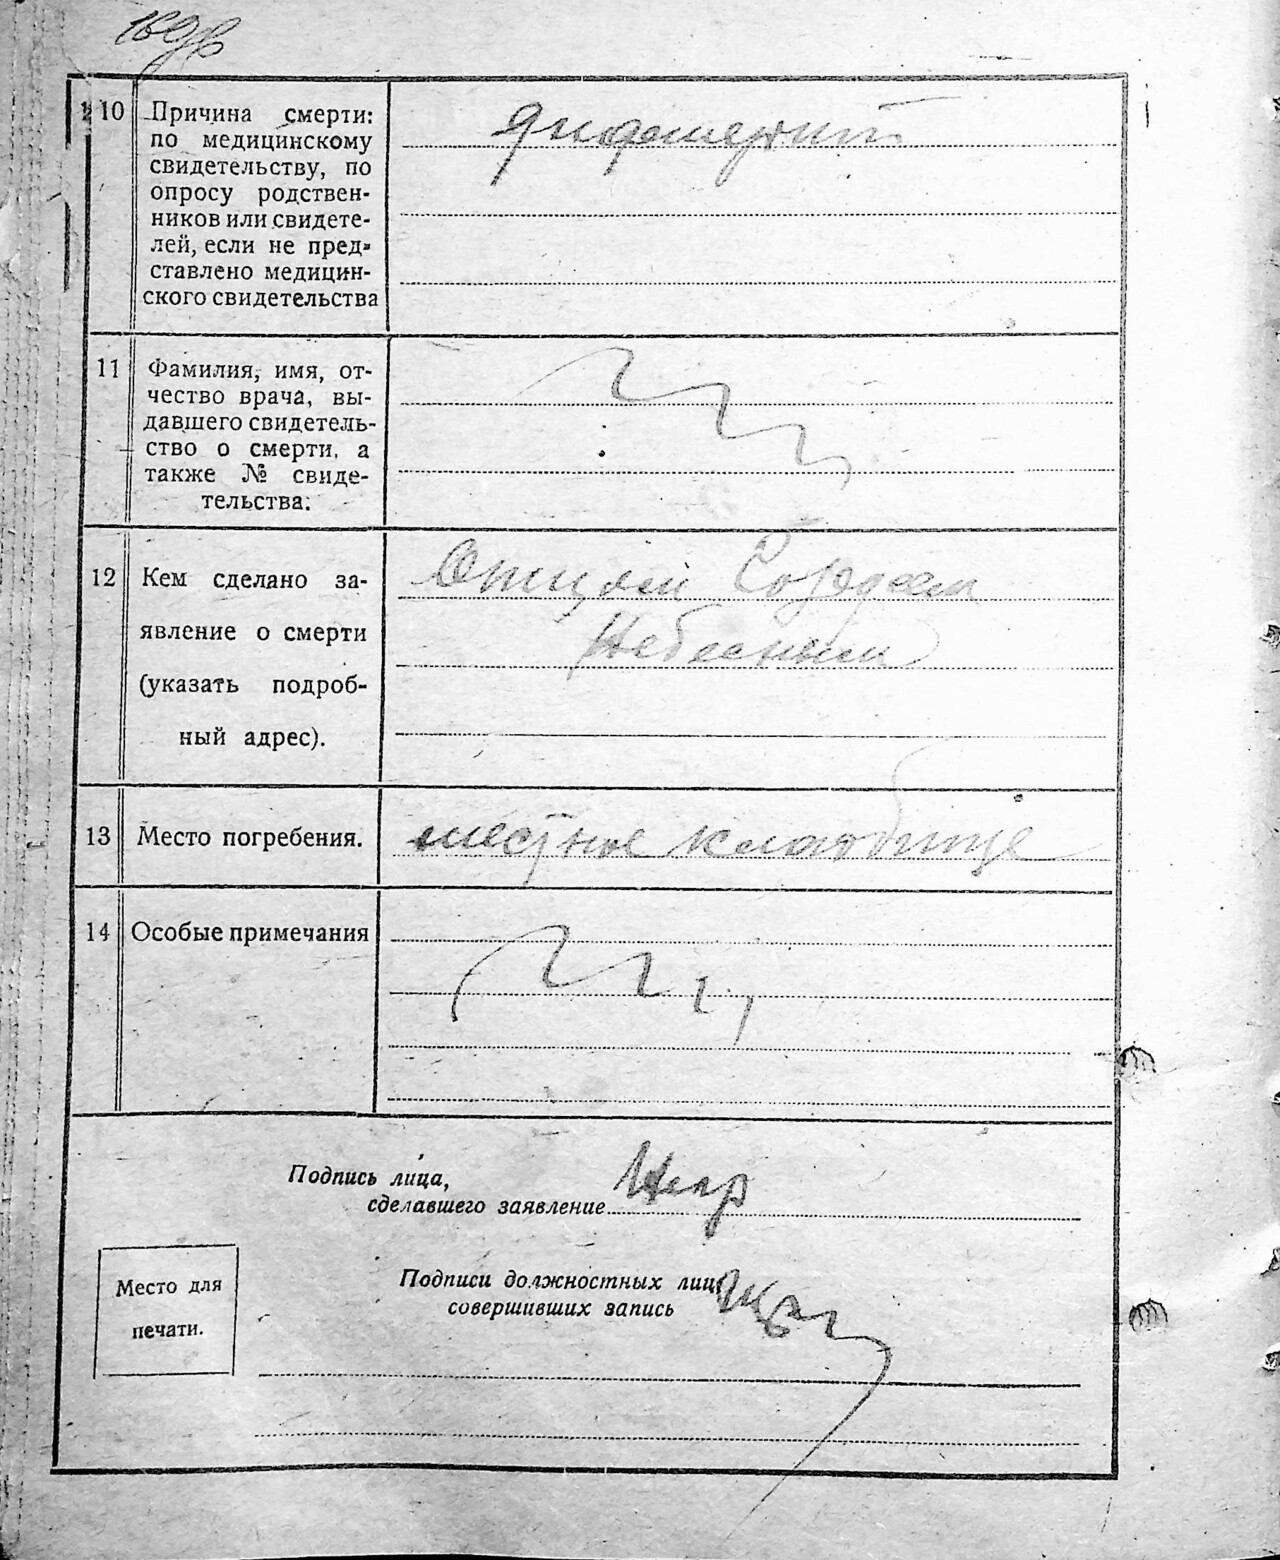 10 Причина смерти:
по медицинскому
свидетельству, по
опросу родствен-
ников или свидете-
лей, если не пред-
ставлено медицин-
ского свидетельства
11 Фамилия, имя, от-
чество врача, вы-
давшего свидетель-
ство о смерти, а
также № свиде-
тельства.
12 Кем сделано за-
явление о смерти
(указать подроб-
ный адрес).
Отцом
Небесным
13 Место погребения. местное кладбище
14 Особые примечания
Подпись лица,
сделавшего заявление
Подписи должностных лиц
совершивших запись
Место для
печати.